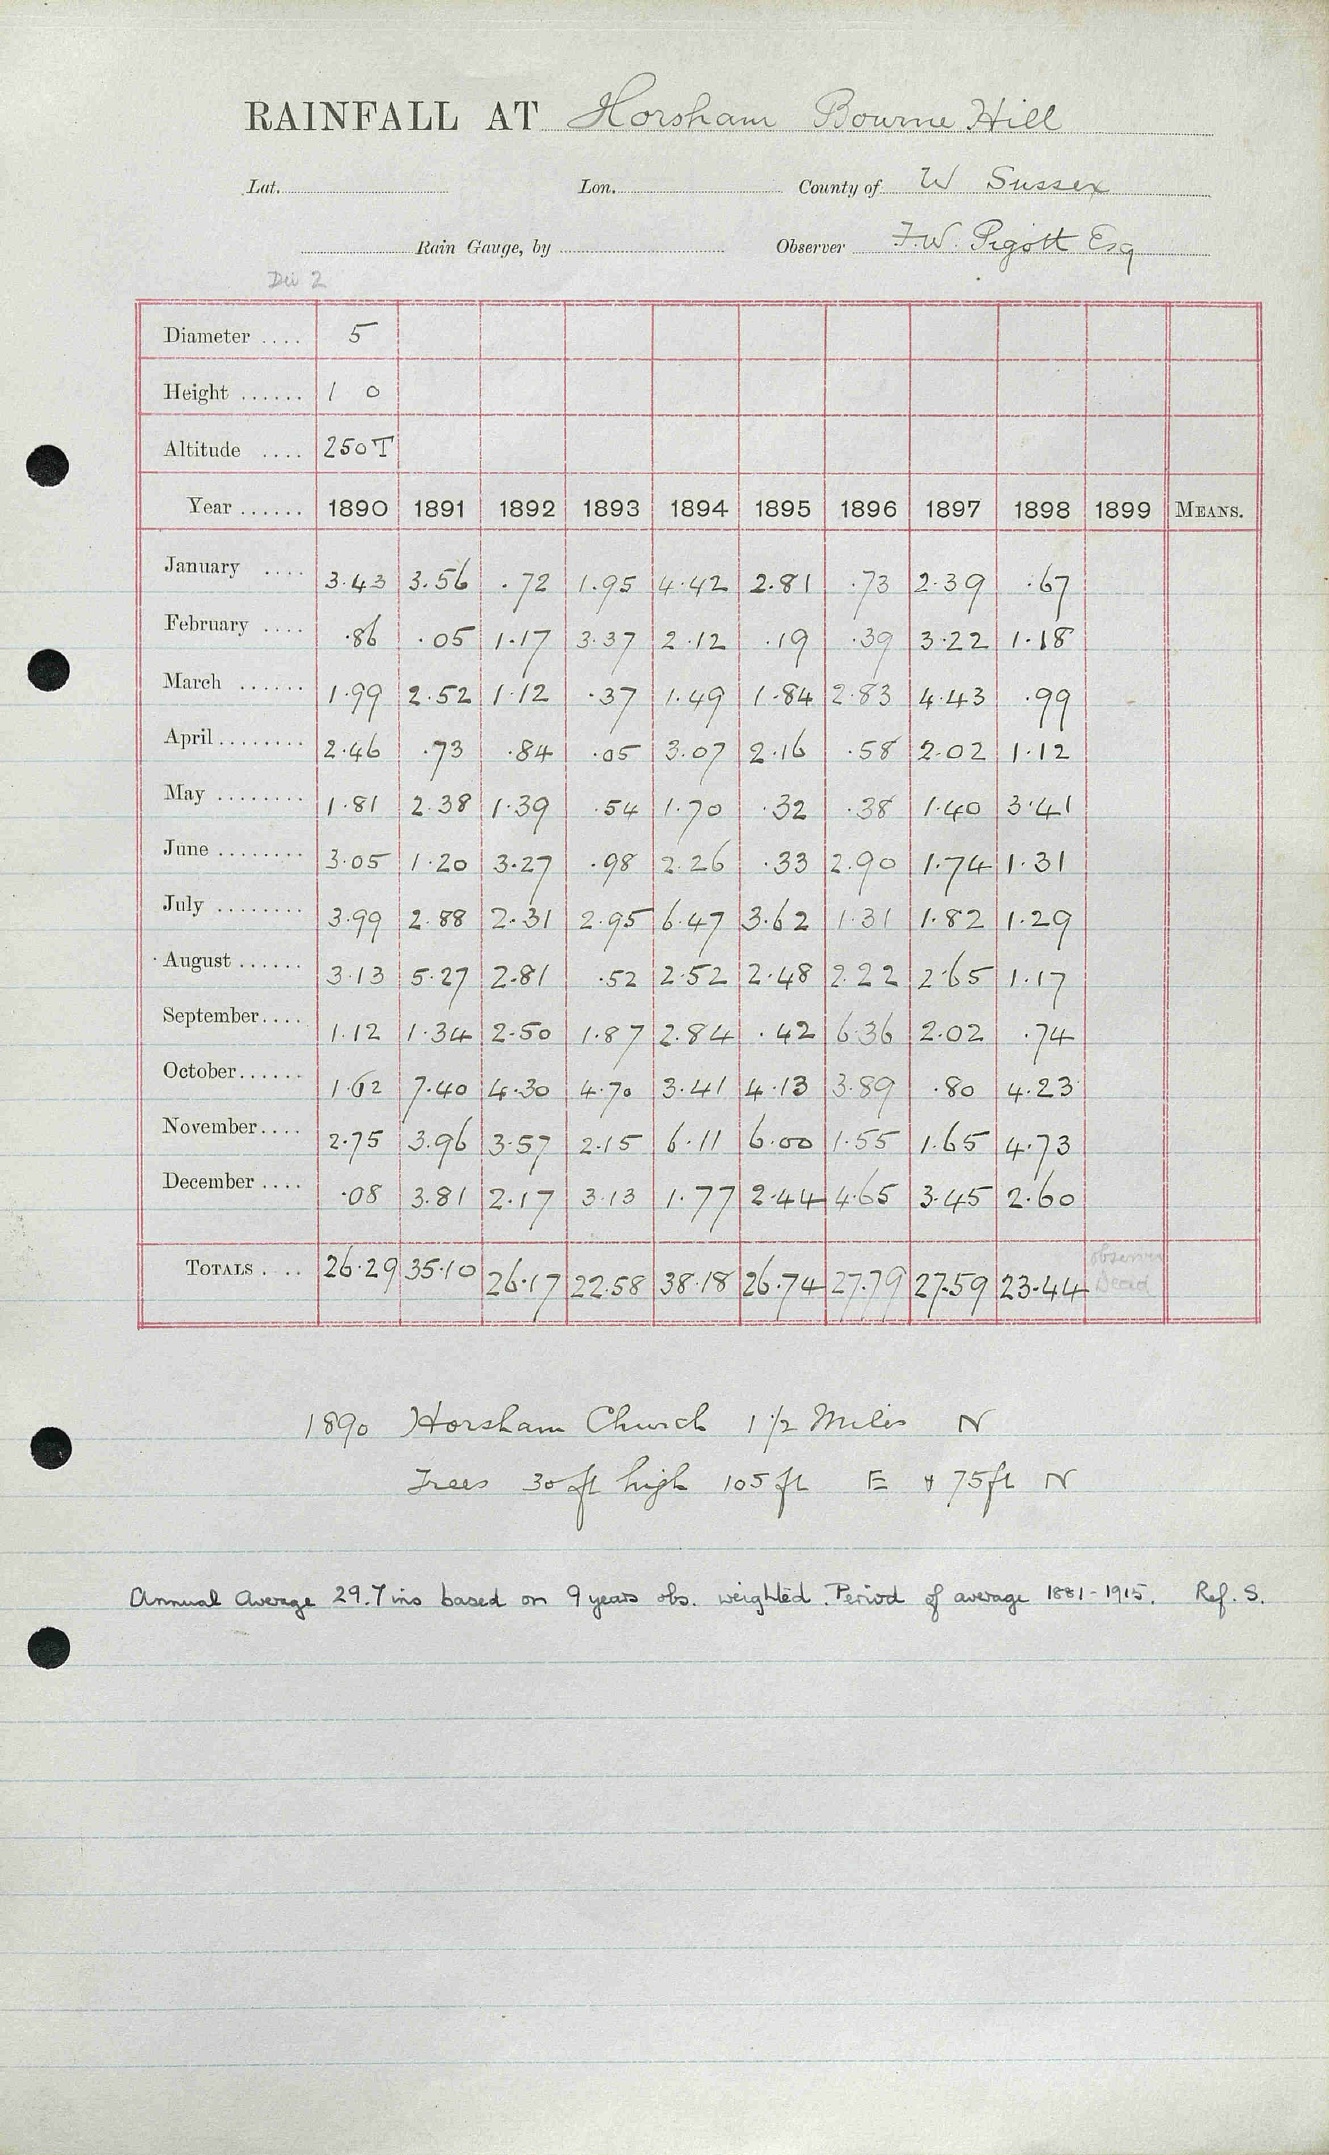 RAINFALL AT Horsham Bourne Hill
Lat. Lon. County of W Sussex
Rain Gauge, by Observer F.W. Pigott Esq
Div 2
Diameter .... 5
Height ...... 1 0
Altitude .... 250T
Year ...... 1890 1891 1892 1893 1894 1895 1896 1897 1898 1899 MEANS.
January .... 3.43 3.56 .72 1.95 4.42 2.81 .73 2.39 .67
February .... .86 .05 1.17 3.37 2.12 .19 .39 3.22 1.18
March ...... 1.99 2.52 1.12 .37 1.49 1.84 2.83 4.43 .99
April........ 2.46 .73 .84 .05 3.07 2.16 .58 2.02 1.12
May ........ 1.81 2.38 1.39 .54 1.70 .32 .38 1.40 3.41
June ........ 3.05 1.20 3.27 .98 2.26 .33 2.90 1.74 1.31
July ........ 3.99 2.88 2.31 2.95 6.47 3.62 1.31 1.82 1.29
August ...... 3.13 5.27 2.81 .52 2.52 2.48 2.22 2.65 1.17
September.... 1.12 1.34 2.50 1.87 2.84 .42 6.36 2.02 .74
October...... 1.62 7.40 4.30 4.70 3.41 4.13 3.89 .80 4.23
November.... 2.75 3.96 3.57 2.15 6.11 6.00 1.55 1.65 4.73
December .... .08 3.81 2.17 3.13 1.77 2.44 4.65 3.45 2.60
TOTALS .... 26.29 35.10 26.17 22.58 38.18 26.74 27.79 27.59 23.44 observer
Dead
1890 Horsham Church 1 1/2 Miles N
Trees 30 ft high 105 ft E & 75 ft N
Annual Average 29.7 ins based on 9 years obs. weighted. Period of average 1881-1915. Ref. S.